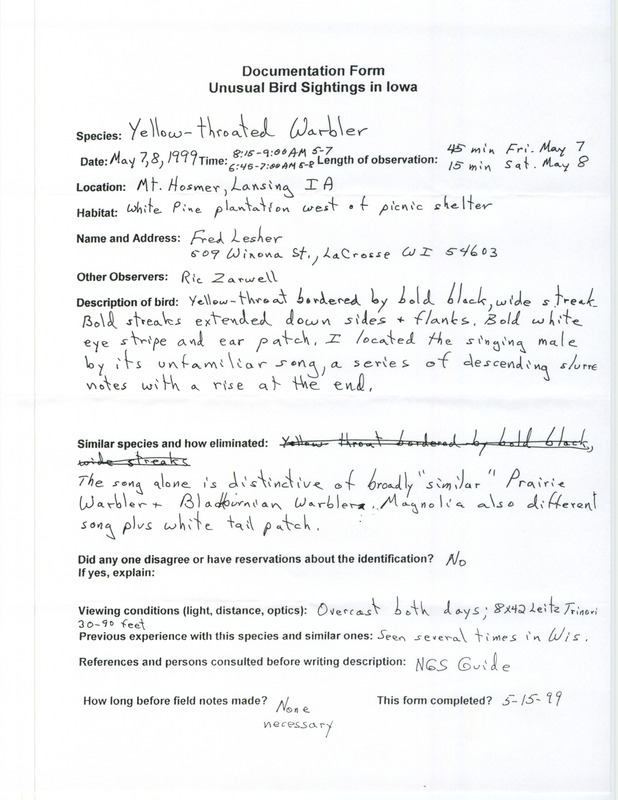 Documentation Form
Unusual Bird Sightings in Iowa
Species: Yellow-throated Warbler
Date: May 7,8, 1999 Time: 8:15-9:00 AM 5-7 Length of observation: 45 min Fri. May 7
6:45-7:00 AM 5-8 15 min Sat. May 8
Location: Mt. Hosmer, Lansing IA
Habitat: White Pine plantation west of picnic shelter
Name and Address: Fred Lesher
509 Winona St., LaCrosse WI 54603
Other Observers: Ric Zarwell
Description of bird: Yellow-throat bordered by bold black, wide streak
Bold streaks extended down sides + flanks. Bold white
eye stripe and ear patch. I located the singing male
by its unfamiliar song, a series of descending slurre
notes with a rise at the end.
Similar species and how eliminated: Yellow throat bordered by bold black,
wide streaks
The song alone is distinctive of broadly "similar" Prairie
Warbler + Blackburnian Warblers. Magnolia also different
song plus white tail patch.
Did any one disagree or have reservations about the identification? No
If yes, explain:
Viewing conditions (light, distance, optics): Overcast both days; 8x42 Leitz Trinovi
30-90 feet
Previous experience with this species and similar ones: Seen several times in Wis.
References and persons consulted before writing description: NGS Guide
How long before field notes made? None This form completed? 5-15-99
necessary